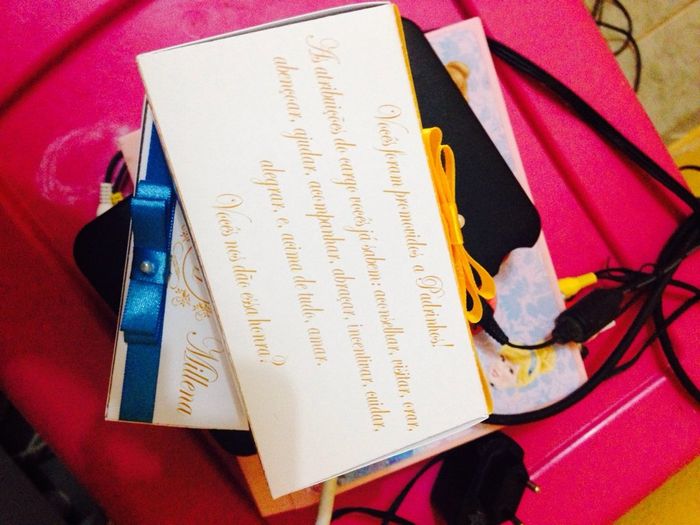 Vocês foram promovidos a Padrinhos!
As atribuições do cargo vocês já sabem: aconselhar, visitar, orar,
abençoar, ajudar, acompanhar, abraçar, incentivar, cuidar,
alegrar, e, acima de tudo, amar.
Vocês nos dão essa honra?
Millena